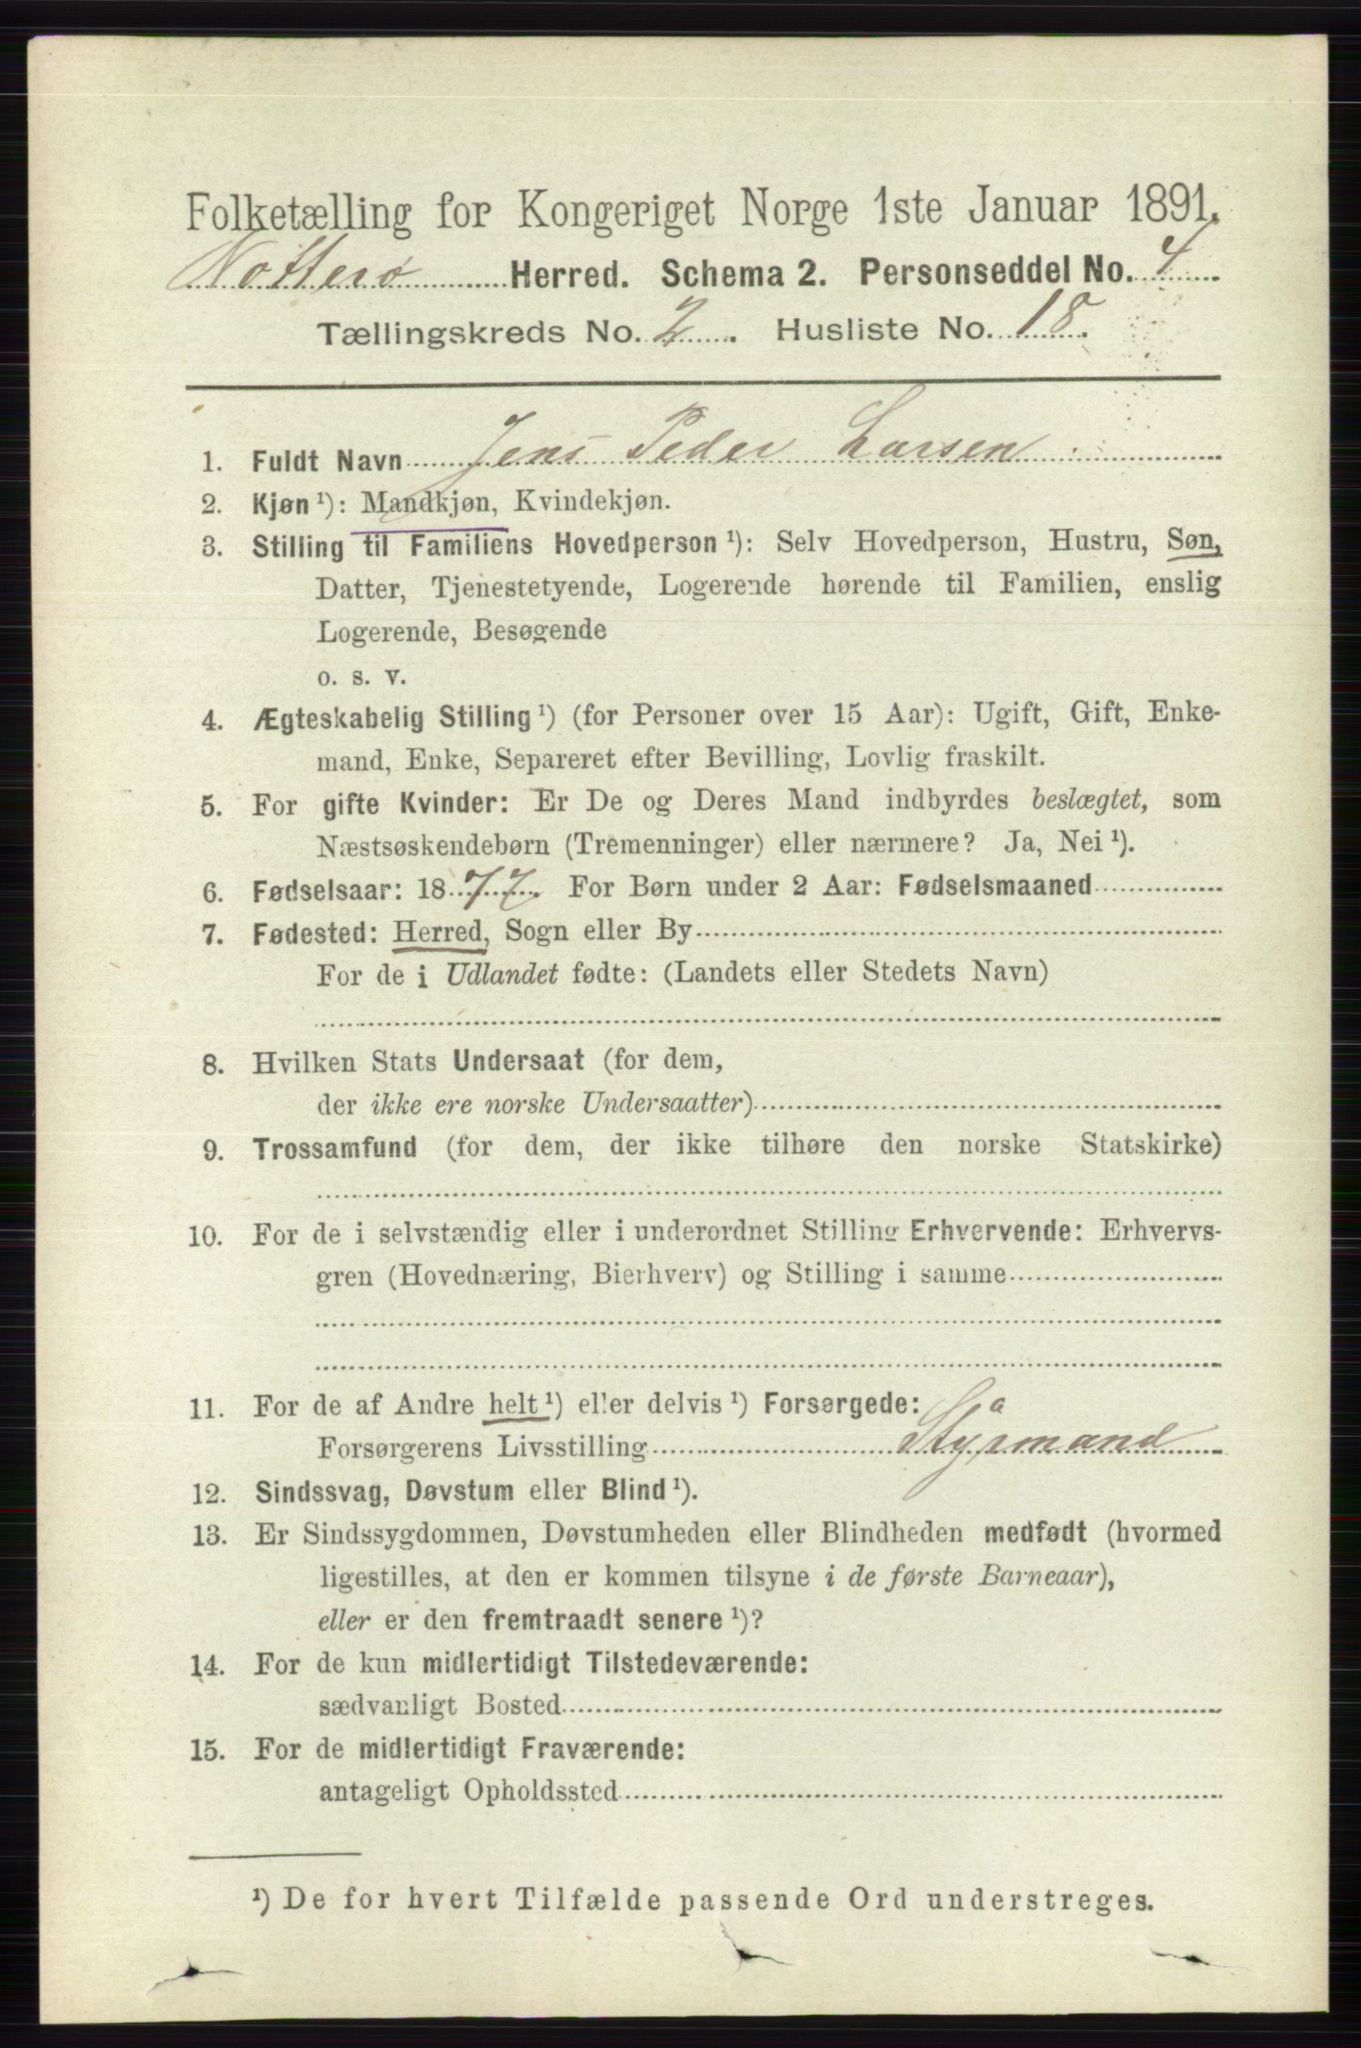 Folketælling for Kongeriget Norge 1ste Januar 1891.
Nøtterø Herred. Schema 2. Personseddel No. 4
Tællingskreds No. 2. Husliste No. 18.
1. Fuldt Navn Jens Peder Larsen
2. Kjøn ¹): Mandkjøn, Kvindekjøn.
3. Stilling til Familiens Hovedperson ¹): Selv Hovedperson, Hustru, Søn,
Datter, Tjenestetyende, Logerende hørende til Familien, enslig
Logerende, Besøgende
o. s. v.
4. Ægteskabelig Stilling ¹) (for Personer over 15 Aar): Ugift, Gift, Enke-
mand, Enke, Separeret efter Bevilling, Lovlig fraskilt.
5. For gifte Kvinder: Er De og Deres Mand indbyrdes beslægtet, som
Næstsøskendebørn (Tremenninger) eller nærmere? Ja, Nei ¹).
6. Fødselsaar: 1877. For Børn under 2 Aar: Fødselsmaaned
7. Fødested: Herred, Sogn eller By
For de i Udlandet fødte: (Landets eller Stedets Navn)
8. Hvilken Stats Undersaat (for dem,
der ikke ere norske Undersaatter)
9. Trossamfund (for dem, der ikke tilhøre den norske Statskirke)
10. For de i selvstændig eller i underordnet Stilling Erhvervende: Erhvervs-
gren (Hovednæring, Bierhverv) og Stilling i samme
11. For de af Andre helt ¹) eller delvis ¹) Forsørgede:
a
Forsørgerens Livsstilling Styrmand
12. Sindssvag, Døvstum eller Blind ¹).
13. Er Sindssygdommen, Døvstumheden eller Blindheden medfødt (hvormed
ligestilles, at den er kommen tilsyne i de første Barneaar),
eller er den fremtraadt senere ¹)?
14. For de kun midlertidigt Tilstedeværende:
sædvanligt Bosted
15. For de midlertidigt Fraværende:
antageligt Opholdssted
¹) De for hvert Tilfælde passende Ord understreges.